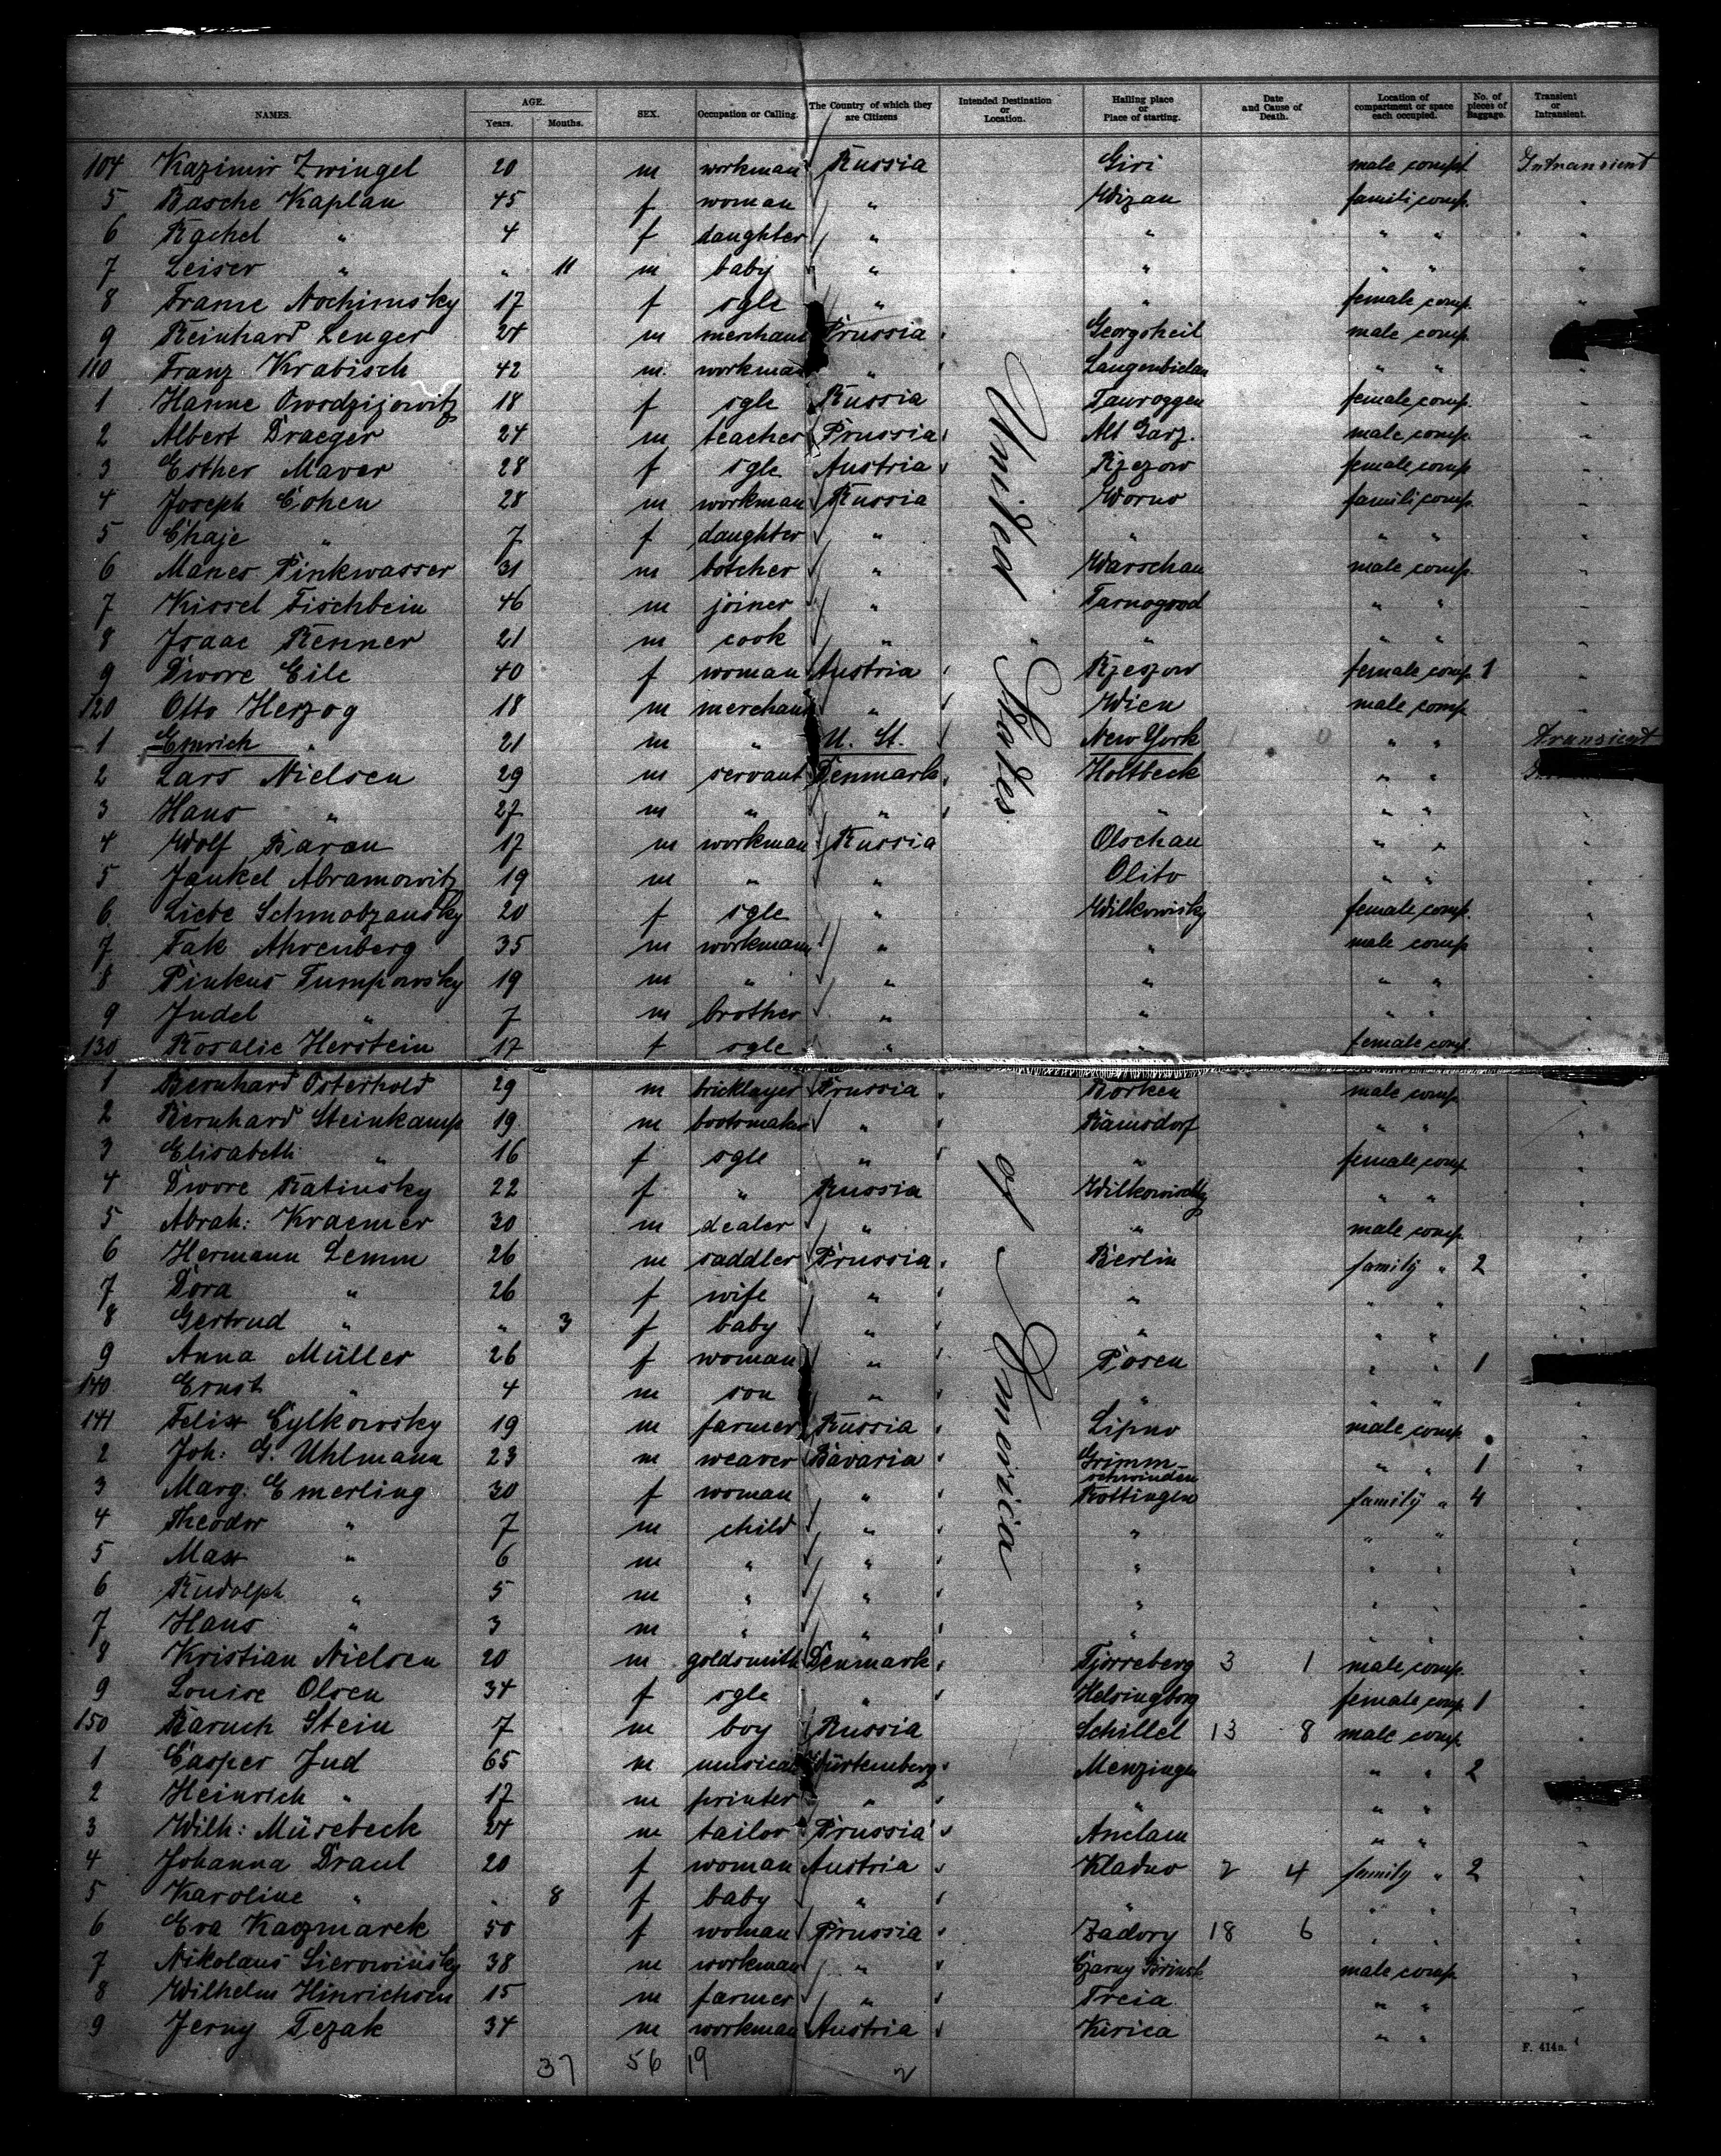 NAMES. AGE. Years. Months. SEX. Occupation or Calling. The Country of which they are Citizens Intended Destination or Location. Hailing place or Place of starting. Date and Cause of Death. Location of compartment or space each occupied. No. of pieces of Baggage. Transient or Intransient.
104 Kazimir Zwingel 20 m workman Russia Giri male compt Intransient
5 Basche Kaplan 45 f woman " Wizan famili comp. "
6 Rachel " 4 f daughter " " " " "
7 Leiser " " 11 m baby " " " " "
8 Frame Nochimsky 17 f sgle " " female comp. "
9 Reinhard Lenger 24 m merchant Prussia Georgsheil male comp.
110 Franz Krabisch 42 m workman " Langenbielau " " "
1 Hanne Owsdzijowitz 18 f sgle Russia Tauroggen female comp. "
2 Albert Draeger 24 m teacher Prussia Alt Garz. male comp. "
3 Esther Maver 28 f sgle Austria Rzezow female comp "
4 Joseph Cohen 28 m workman Russia Worno famili comp. "
5 Chaje " 7 f daughter " " " " "
6 Manes Pinkwasser 31 m botcher " Warschau male comp. "
7 Kissel Fischbein 46 m joiner " Tarnogrod " " "
8 Isaac Renner 21 m cook " " " " "
9 Dwore Eile 40 f woman Austria Rzeszow female comp 1 "
120 Otto Herzog 18 m merchant " Wien male comp "
1 Emrich " 21 m " U. St. New York " " Transient
2 Lars Nielsen 29 m servant Denmark Holtbeck " "
3 Hans " 27 m " " " " " "
4 Wolf Baran 17 m workman Russia Olschan " " "
5 Jankel Abramowitz 19 m " " Olito " " "
6 Liebe Schmabzansky 20 f sgle " Wilkowisky female comp. "
7 Fak Ahrenberg 35 m workman " " male comp "
8 Pinkus Tumpowsky 19 m " " " " " "
9 Judel " 7 m brother " " " " "
130 Rosalie Herstein 17 f sgle " " female comp. "
1 Bernhard Osterhold 29 m bricklayer Prussia Borken male comp "
2 Bernhard Steinkamp 19 m bootsmaker " Ramsdorf " " "
3 Elisabeth " 16 f sgle " " female comp "
4 Dwore Ratinsky 22 f " Russia " " "
5 Abrah: Kraemer 30 m dealer " " male comp "
6 Hermann Lemm 26 m saddler Prussia Berlin family " 2 "
7 Dora " 26 f wife " " " " "
8 Gertrud " " 3 f baby " " " " "
9 Anna Müller 26 f woman " Posen " " 1
140 Ernst " 4 m son " " " " "
141 Felix Cylkowsky 19 m farmer Russia Lipno male comp "
2 Joh: G. Uhlmann 23 m weaver Bavaria Grimm- " " 1 "
schwinden
3 Marg: Emerling 30 f woman " Rottingen family " 4 "
4 Theodor " 7 m child " " " " "
5 Max " 6 m " " " " " "
6 Rudolph " 5 m " " " " " "
7 Hans " 3 m " " " " " "
8 Kristian Nielsen 20 m goldsmith Denmark Tjorreberg 3 1 male comp. "
9 Louise Olsen 34 f sgle " Helsingborg female comp 1 "
150 Baruch Stein 7 m boy Russia Schillel 13 8 male comp "
1 Casper Jud 65 m musical Würtemberg Menzingen " " 2 "
2 Heinrich " 17 m printer " " " "
3 Wilh: Müsebeck 24 m tailor Prussia Anclam " " "
4 Johanna Draul 20 f woman Austria Kladno 2 4 family " 2 "
5 Karoline " " 8 f baby " " " " "
6 Eva Kaczmarek 50 f woman Prussia Zadory 18 6 " " "
7 Nikolaus Sierowinsky 38 m workman " Czarny male comp "
8 Wilhelm Hinrichsen 15 m farmer " Treia " " "
9 Jerny Tezak 34 m workman Austria Kirica " " "
United States of America
37 56 19
F. 414a.